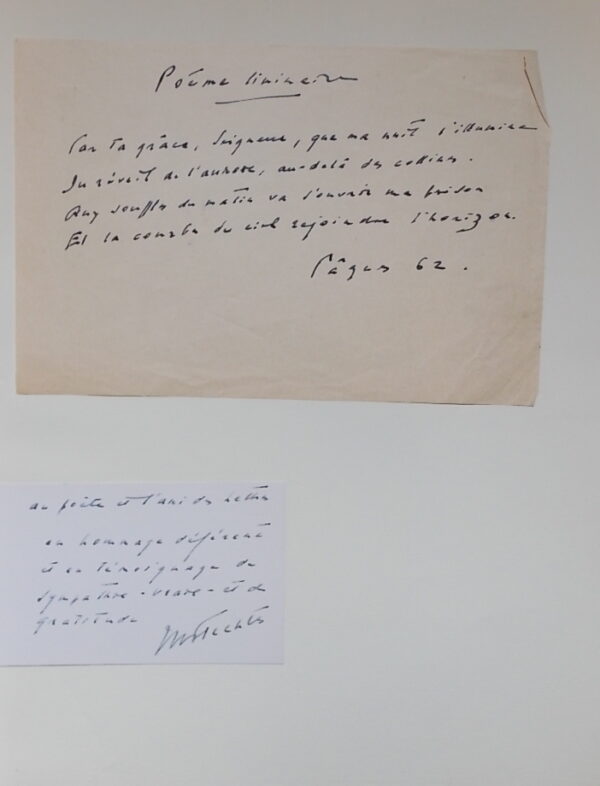 Poème liminaire
Car ta grâce, Seigneur, que ma nuit s'illumine
Du réveil de l'aurore, au-delà des collines.
Aux souffles du matin va s'ouvrir ma prison
Et la courbe du ciel rejoindre l'horizon.
Pâques 62.
au poète et l'ami des Lettres
en hommage déférent
et en témoignage de
sympathie - vraie - et de
gratitude